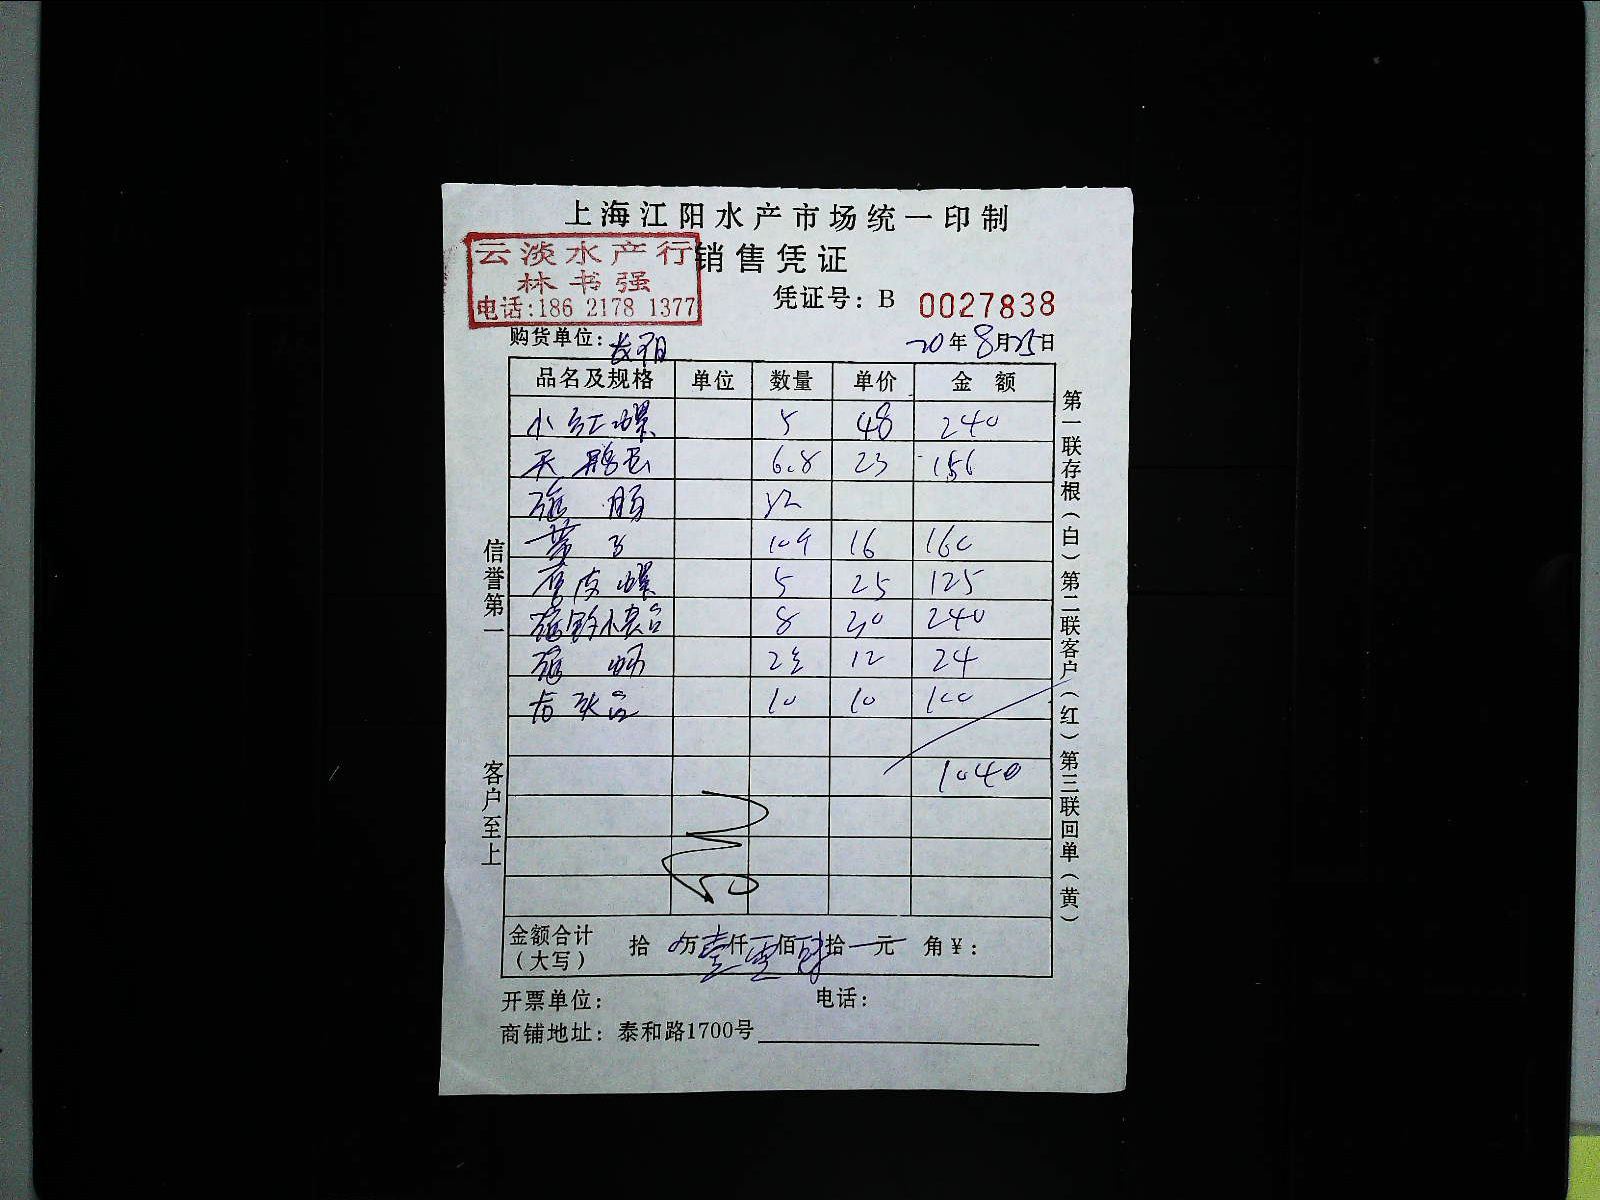 上海江阳水产市场统一印制
云淡水产行 销售凭证
林书强
电话:186 2178 1377
凭证号: B 0027838
购货单位:
20年8月25日
品名及规格 单位 数量 单价 金额
小红螺 5 48 240
天鹅 6.8 23 156
16 160
皮螺 5 25 125
8 30 240
12 24
10 10 100
1040
金额合计 拾 万壹仟零佰肆拾 元 角 ¥:
(大写)
开票单位: 电话:
商铺地址: 泰和路1700号
信誉第一
客户至上
第一联存根(白)第二联客户(红)第三联回单(黄)